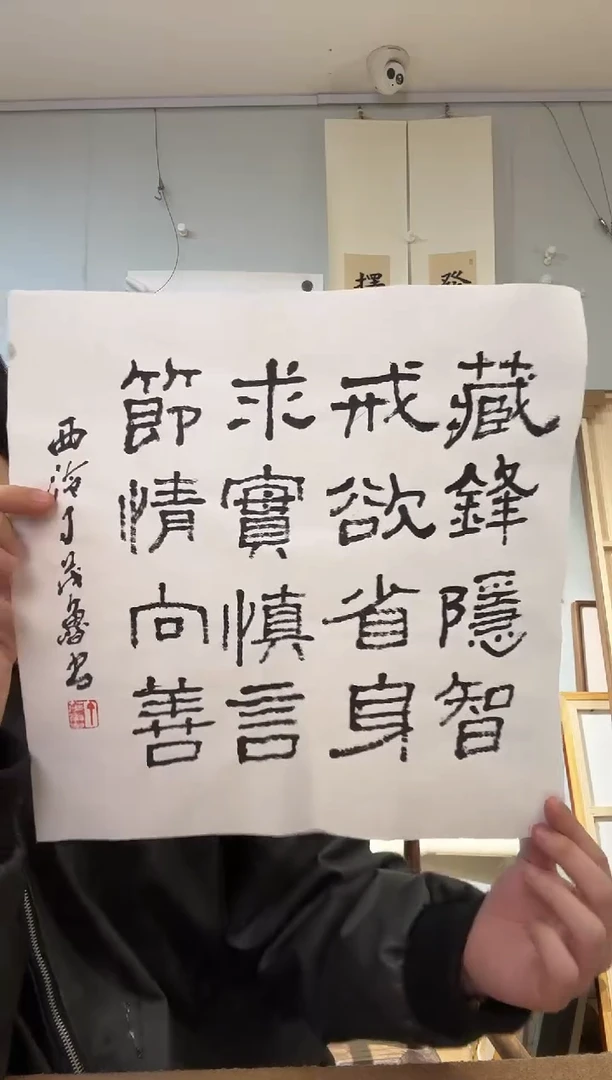 藏鋒隱智
戒欲省身
求實慎言
節情向善
西海丁茂魯书
發
擇